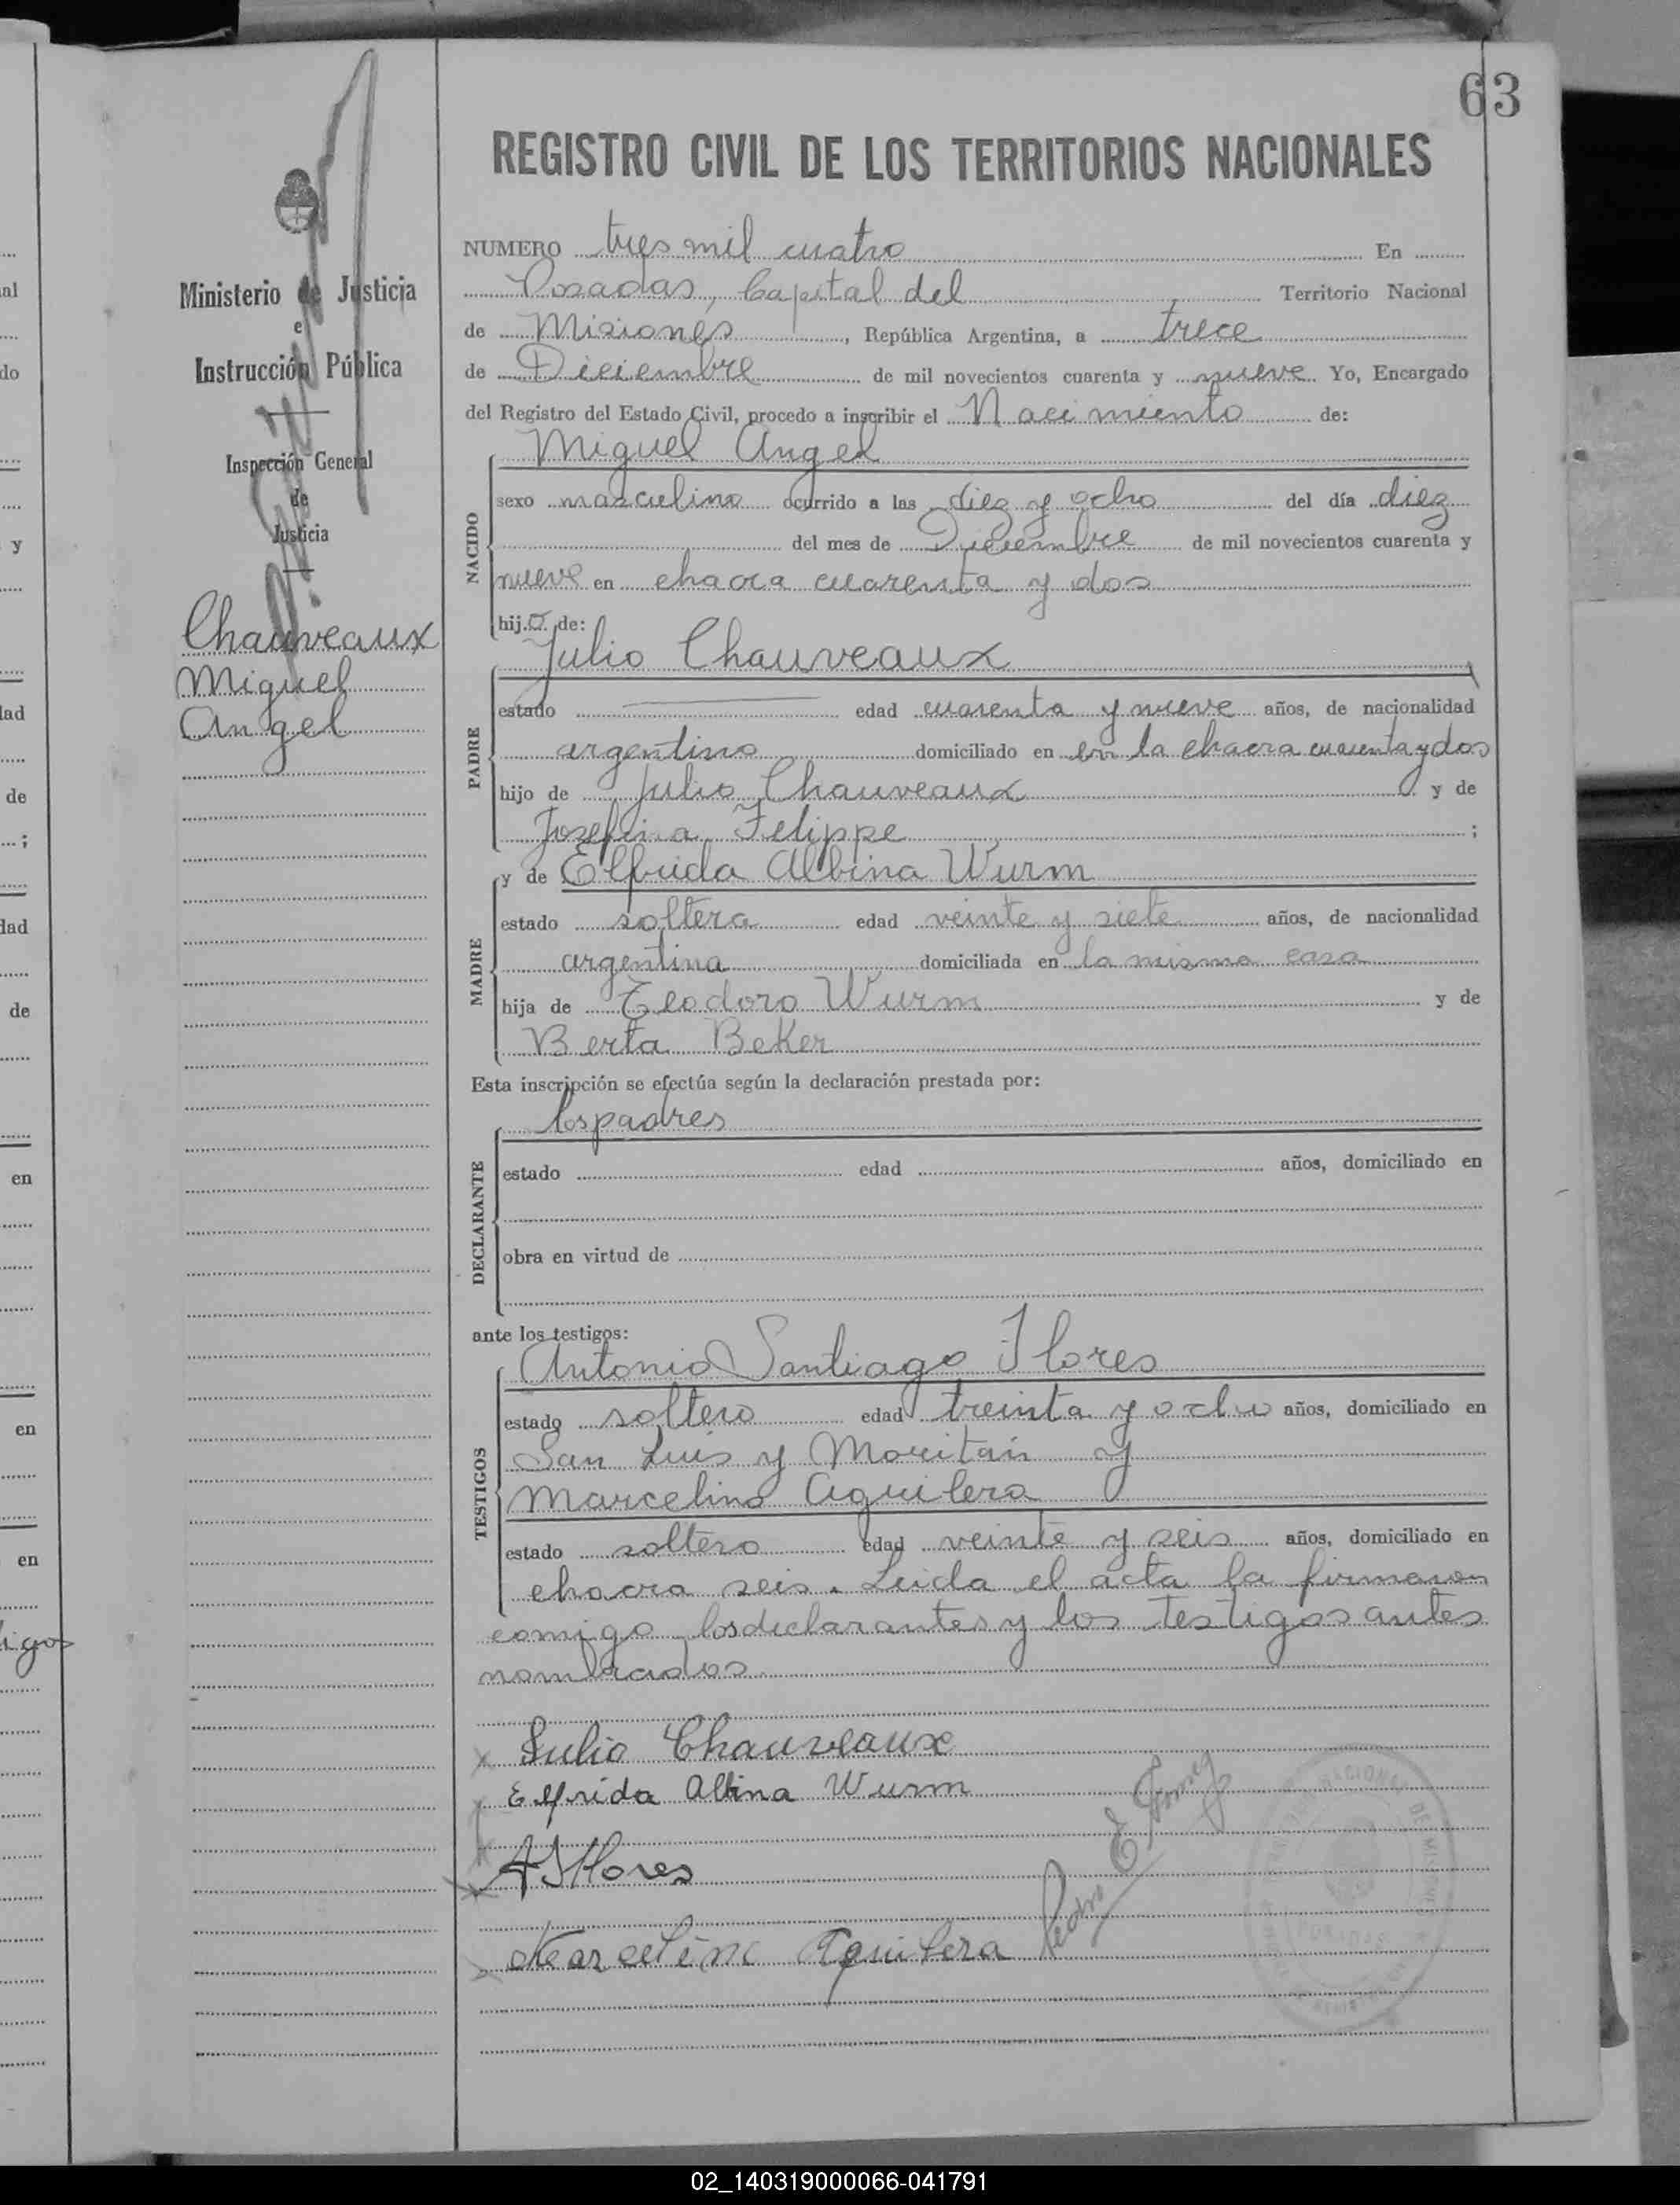 63
REGISTRO CIVIL DE LOS TERRITORIOS NACIONALES
Ministerio de Justicia
e
Instrucción Pública
Inspección General
de
Justicia
Chauveaux
Miguel
Angel
NUMERO tres mil cuatro En
Posadas, Capital del Territorio Nacional
de Misiones, República Argentina, a trece
de Diciembre de mil novecientos cuarenta y nueve Yo, Encargado
del Registro del Estado Civil, procedo a inscribir el Nacimiento de:
Miguel Angel
NACIDO
sexo masculino ocurrido a las diez y ocho del día diez
del mes de Diciembre de mil novecientos cuarenta y
nueve en chacra cuarenta y dos
hij.o. de:
Julio Chauveaux
PADRE
estado edad cuarenta y nueve años, de nacionalidad
argentino domiciliado en en la chacra cuarenta y dos
hijo de Julio Chauveaux y de
Josefina Felippe ;
y de Elfrida Albina Wurm
MADRE
estado soltera edad veinte y siete años, de nacionalidad
argentina domiciliada en la misma casa
hija de Teodoro Wurm y de
Berta Beker
Esta inscripción se efectúa según la declaración prestada por:
los padres
DECLARANTE
estado edad años, domiciliado en
obra en virtud de
ante los testigos:
Antonio Santiago Flores
TESTIGOS
estado soltero edad treinta y ocho años, domiciliado en
San Luis y Moritán y
Marcelino Aguilera
estado soltero edad veinte y seis años, domiciliado en
chacra seis. Leida el acta la firmaron
comigo los declarantes y los testigos antes
nombrados
Julio Chauveaux
Elfrida Albina Wurm
A S Flores
Marcelino Aguilera
Pedro E
02_140319000066-041791